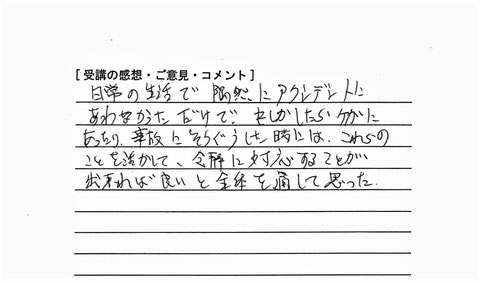 [受講の感想・ご意見・コメント]
日常の生活で 偶然にアクシデントに
あわなかっただけで、もしかしたらケガに
あったり、事故にそうぐうした時には、これらの
ことを活かして、冷静に対応することが
出来れば良いと全体を通して思った.